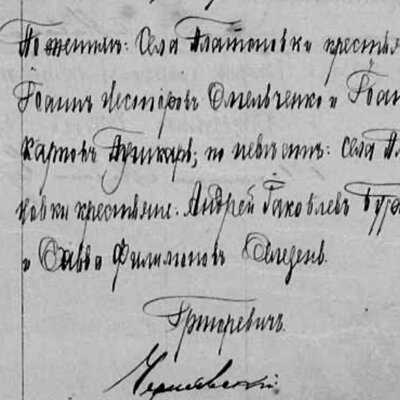 По женихѣ: Села Платоновки крестья
Іоаннъ Несторовъ Омельченко и Іоан
Карповъ Пушкарь; по невѣстѣ: села Пл
новки крестьяне: Андрей Яковлевъ
и Савва Филимоновъ Селедень.
Григоревичъ.
Чернявскій